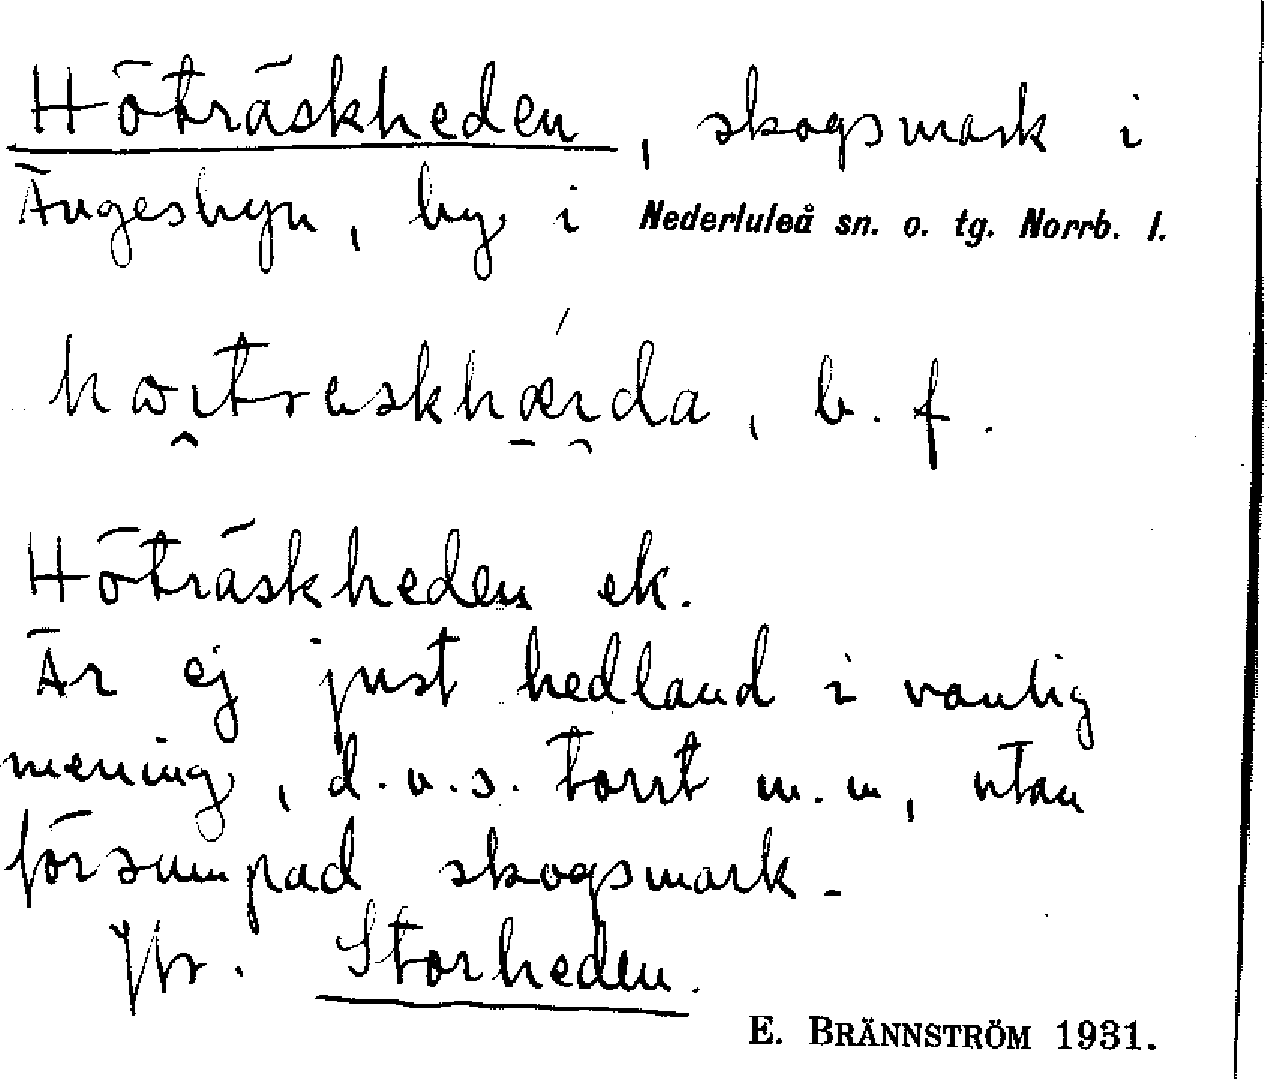 Höträskheden, skogsmark i
Ängesbyn, by i Nederluleå sn. o. tg. Norrb. l.
hɷi̯treskhæ̠i̯da, b. f.
Höträskheden ek.
Är ej just hedland i vanlig
mening, d.v.s. torrt m.m, utan
försumpad skogsmark.
Jfr. Storheden.
E. BRÄNNSTRÖM 1931.